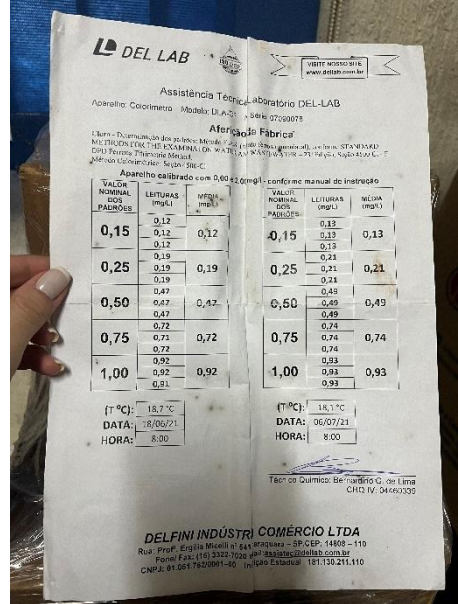 DEL LAB
VISITE NOSSO SITE
www.dellab.com.br
Assistência Técnica Laboratório DEL-LAB
Aparelho: Colorímetro Modelo: Série 07090078
Aferição de Fábrica
METHODS FOR THE EXAMINATION WATER AND WASTEWATER
Aparelho calibrado com 0,00 e 2,00mg/L - conforme manual de instrução
VALOR NOMINAL DOS PADRÕES LEITURAS (mg/L) MÉDIA (mg/L)
0,15 0,12 0,12 0,12 0,12
0,25 0,19 0,19 0,19 0,19
0,50 0,47 0,47 0,47 0,47
0,75 0,72 0,71 0,72 0,72
1,00 0,92 0,92 0,91 0,92
(T ºC): 18,7 °C
DATA: 18/06/21
HORA: 8:00
VALOR NOMINAL DOS PADRÕES LEITURAS (mg/L) MÉDIA (mg/L)
0,15 0,13 0,13 0,13 0,13
0,25 0,21 0,21 0,21 0,21
0,50 0,49 0,49 0,49 0,49
0,75 0,74 0,74 0,74 0,74
1,00 0,93 0,93 0,93 0,93
(T ºC): 18,1 °C
DATA: 06/07/21
HORA: 8:00
Técnico Químico: Bernardino C. de Lima
CRQ IV: 04460339
DELFINI INDÚSTRI COMÉRCIO LTDA
Rua: Profª. Ergília Micelli nº 541 araquara – SP.CEP: 14808 – 110
Fone/ Fax: (16) 3322-7020 assistec@dellab.com.br
CNPJ: 01.061.762/0001-60 Estadual 181.130.211.110